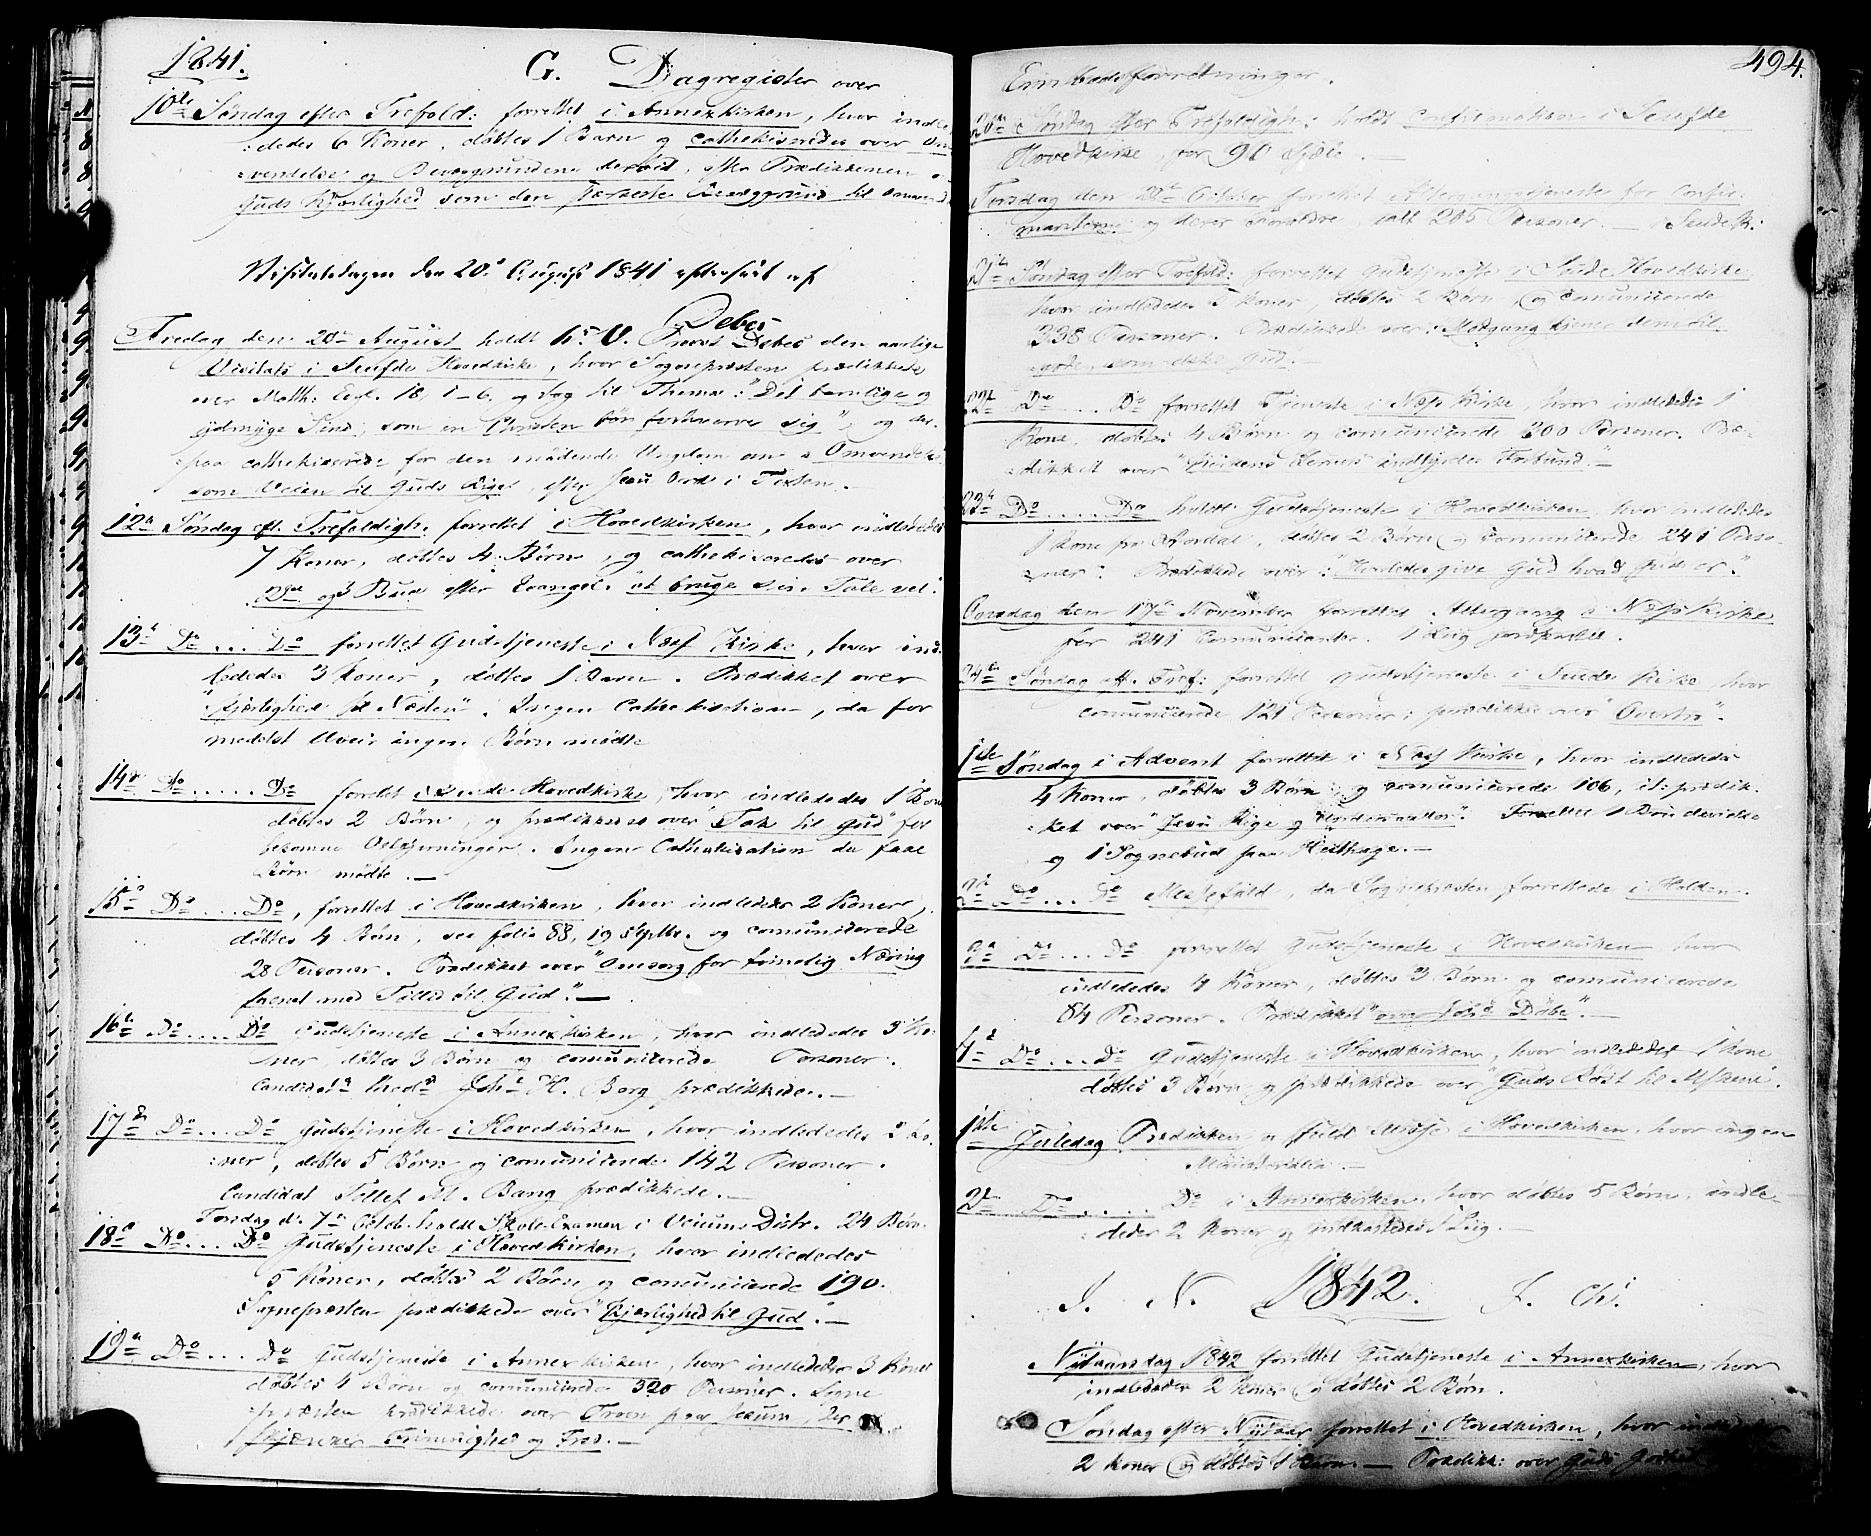 1841.
G. Dagregister over
10de Søndag efter Trefold: forrettet i Annexkirken, hvor indle
:dedes 6 Koner, døbtes 1 Barn og cathekiseredes over Om
:vendelse og Bevæggrundene dertil, efter Prædikkenen
Guds Kjærlighed som den stærkeste Bevæggrund til Omvend
Visitatsdagen den 20de August 1841 efterseet af
Debes
Fredag den 20de August holdt Hr. Provst Debes den aarlige
Visitats i Seufde Hovedkirke, hvor Sognepræsten prædikkede
over Matth: Evgl. 18, 1-6, og tog til Thema: "Det barnlige og
ydmyge Sind, som en Christen bør forhverve sig", og der-
:paa cathekiserede for den mødende Ungdom om Omvendelse
som Veien til Guds Rige, efter Jesu Ord i Texten.
12te Søndag eft. Trefoldigh. forrettet i Hovedkirken, hvor indlededes
7 Koner, døbtes 4 Børn, og cathekiseredes over
2det og 3 Bud efter Evangel. at bruge sin Tale vel.
13de Do ... Do forrettet Gudstjeneste i Næss Kirke, hvor ind-
lededes 3 Koner, døbtes 1 Barn. Prædikket over
"Kjærlighed til Næsten". Ingen Cathekisation, da for
medelst Uveir ingen Børn mødte
14de Do ..... Do forrettet i Seude Hovedkirke, hvor indlededes 1 Kone
døbtes 2 Børn, og prædikkedes over "Tak til Gud" for
bekomne Velgjerninger. Ingen Cathekisation da faae
Børn mødte.—
15de Do ... Do, forrettet i Hovedkirken, hvor indlededes 2 Koner,
døbtes 4 Børn, see folio 88, 19 Septbr. og comunicerede
28 Personer. Prædikket over "Omsorg for timelig Næring
forenet med Tillid til Gud".—
16de Do .... Do Gudstjeneste i Annexkirken, hvor indlededes 3 Ko-
:ner, døbtes 3 Børn og comunicerede Personer.
Candidat Joh: H. Berg prædikkede.—
17de Do ... Do Gudstjeneste i Hovedkirken, hvor indlededes 2 Ko-
:ner, døbtes 5 Børn og comunicerede 142 Personer.
Candidat Tollef M. Bang prædikkede.—
Torsdag d. 7de Octob. holdt Skole-Examen i Veiums Distr. 24 Børn
18de Do ... Do Gudstjeneste i Hovedkirken, hvor indlededes
5 Koner, døbtes 2 Børn og comunicerede 190.
Sognepræsten prædikkede over "Kjærlighed til Gud".—
19de Do ... Do Gudstjeneste i Annexkirken, hvor indlededes 3 Koner
døbtes 4 Børn og comunicerede 320 Personer. Sogne
:præsten prædikkede over Troen paa Jesum, der
skjænker Frimodighed og Fred.—
494.
Embedsforretninger.
20de Søndag efter Trefoldigh: holdt Confirmation i Seufde
Hovedkirke for 90 Sjæle.
Torsdag den October forrettet Altergangstjeneste for Confir-
manterne og deres Forældre, ialt 205 Personer.— i Seude K:
21de Søndag efter Trefold: forrettet Gudstjeneste i Seude Hovedkirke
hvor indlededes 5 Koner, døbtes 2 Børn og comunicerede
338 Personer. Prædikkede over: Modgang tjener dem til
gode, som elske Gud.—
22de Do .... Do forrettet Tjeneste i Næss Kirke, hvor indlededes 1
Kone, døbtes 4 Børn og comunicerede 300 Personer. Præ-
:dikket over Forbund."
23de Do .... Do holdt Gudstjeneste i Hovedkirken, hvor indlededes
1 Kone fra døbtes 2 Børn og comunicerede 241 Perso-
:ner: Prædikkede over: give Gud hvad Guds er."
Onsdag den 17de November forrettet Altergang i Næss Kirke
for 241 Comunicanter. 1 Liig
24de Søndag eft. Tref: forrettet Gudstjeneste i Seude Kirke, hvor
comunicerede 121 Personer; prædikkedes over "Overtro".
1ste Søndag i Advent forrettet i Næss Kirke, hvor indlededes
4 Koner, døbtes 3 Børn, og comunicerede 106, it: prædik-
:ket over "Jesu Rige og Undersaatter". Forrettet 1
og 1 Sognebud paa
2de Do ... Do Messefald, da Sognepræsten forrettede i Holden.
3de Do ... Do forrettet Gudstjeneste i Hovedkirken hvor
indlededes 4 Koner, døbtes 3 Børn og comunicerede
84 Personer. Prædikket "over Joh: Døbe".—
4de Do ... Do Gudstjeneste i Hovedkirken, hvor indlededes 1 Kone
døbtes 3 Børn og prædikkede over "Guds Røst til Msknene".
1ste Juledag Prædikken og fuld Messe i Hovedkirken, hvor ingen
Ministerialia.—
2de Do ..... Do i Annexkirken, hvor døbtes 5 Børn, indle
:dedes 2 Koner og jordkastedes 1 Liig.—
I. N. 1842. J. Chi.
Nytaarsdag 1842 forrettet Gudstjeneste i Annexkirken, hvor
indlededes 2 Koner og døbtes 2 Børn.
Søndag efter Nytaar forrettet i Hovedkirken, hvor indlededes
2 Koner og døbtes 1 Barn.— Prædikk: over Guds